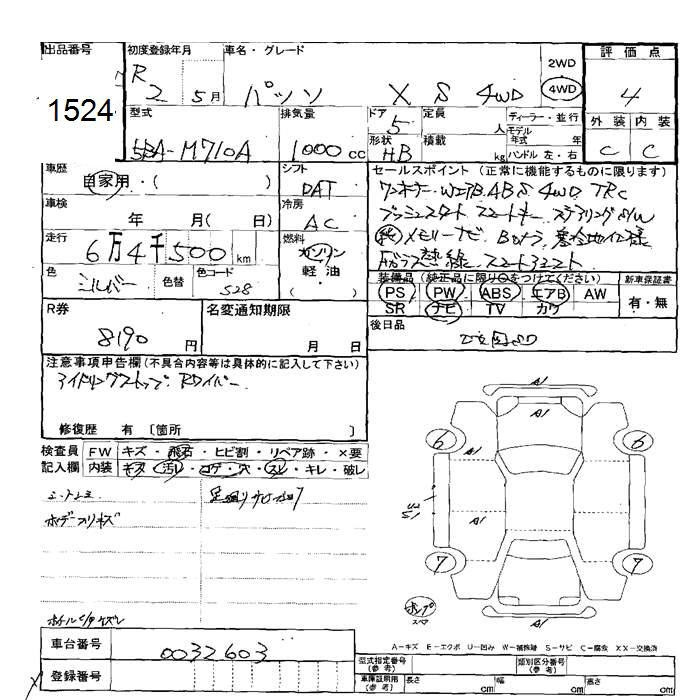 出品番号 初度登録年月 車名・グレード 評価点
1524
R 2 5月 パッソ X S 4WD
2WD
4WD
4
型式 排気量 ドア 定員 ディーラー・並行
5 人 モデル年式 年
外装 内装
5BA-M710A 1000cc
形状 積載
HB kg ハンドル 左・右
C C
車歴 シフト セールスポイント(正常に機能するものに限ります)
自家用・( ) DAT
ワンオーナー. WエアB.ABS 4WD TRC
車検 冷房
年 月( 日) AC
プッシュスタート スマートキー. ステアリングS/W
走行 燃料
6万4千500km ガソリン
軽油
( )
純 メモリーナビ. Bカメラ. 寒冷地仕様
Fガラス熱線. スマートアシスト
色 色替 色コード
シルバー S28
装備品(純正品に限り○をつけてください) 新車保証書
PS PW ABS エアB AW 有・無
SR ナビ TV カワ
R券 名変通知期限
8190円 月 日
後日品
注意事項申告欄(不具合内容等は具体的に記入して下さい)
アイドリングストップ. Rワイパー.
修復歴 有 〔箇所 〕
検査員 FW キズ・飛石・ヒビ割・リペア跡・×要
記入欄 内装 キズ・汚レ・コゲ・穴・スレ・キレ・破レ
シートシミ
ボデーフリキズ
ホイルC/Pキズレ
A1
A1
6 A1 6
A1
7 7
A1
A1
スペア
A-キズ E-エクボ U-凹み W-補修跡 S-サビ C-腐食 XX-交換済
車台番号 0032603
登録番号
型式指定番号(参考) 類別区分番号(参考)
車庫証明用(参考) 長さ cm 幅 cm 高さ cm